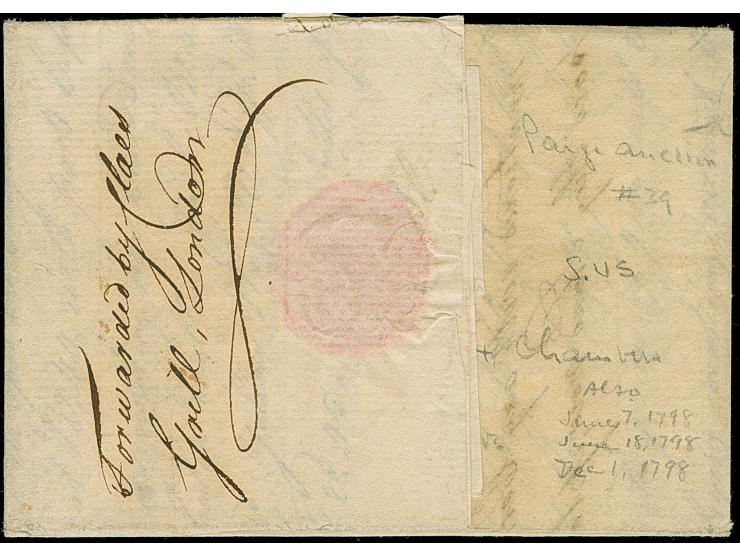 Forwarded by Claes
Grill, London
Paige auction
#39
S. US
Chambers
Also
June 7, 1798
June 18, 1798
Dec 1, 1798